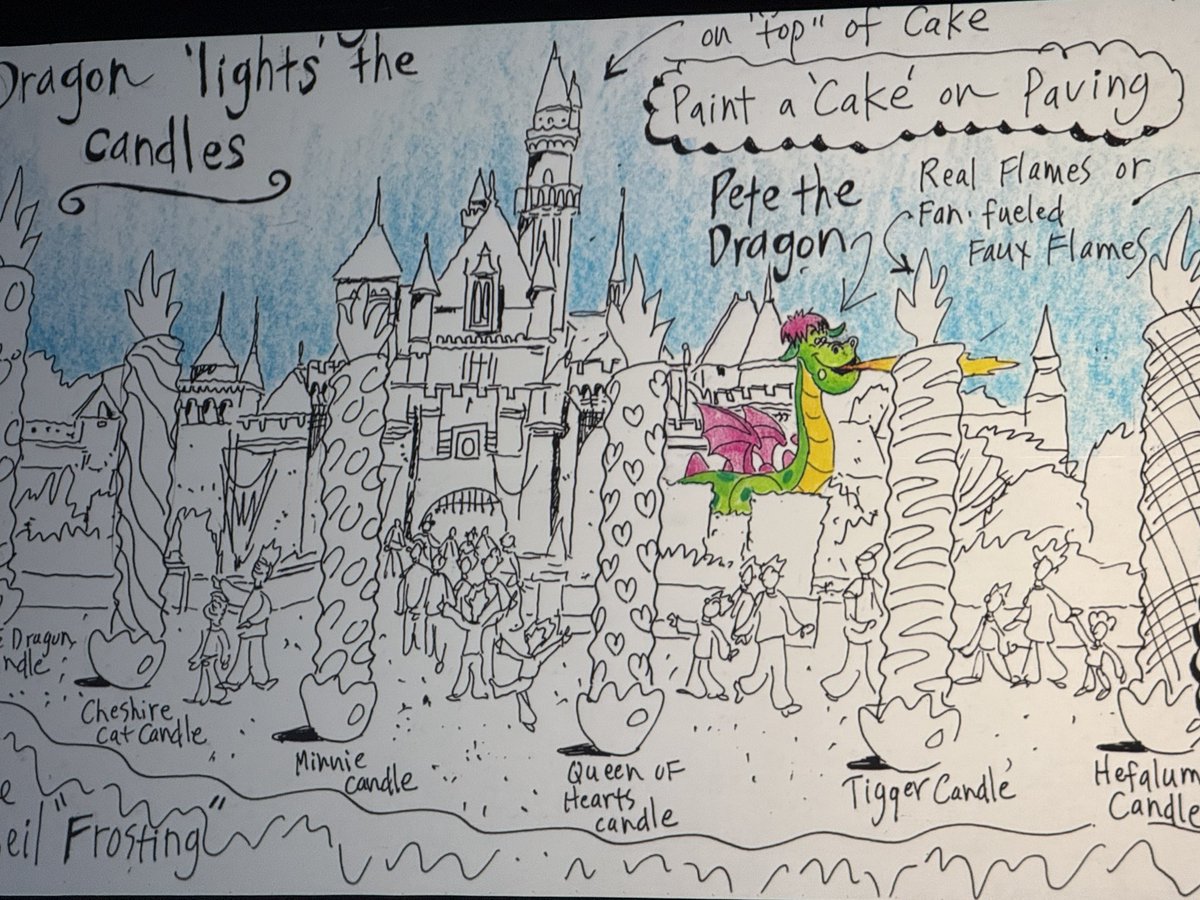 Dragon 'lights' the
candles
on "top" of Cake
Paint a 'Cake' on Paving
Pete the
Dragon
Real Flames or
Fan-fueled
Faux Flames
Dragon
Cheshire
Cat Candle
Minnie
candle
Queen of
Hearts
candle
Tigger Candle
Hefalum
Candle
"Frosting"